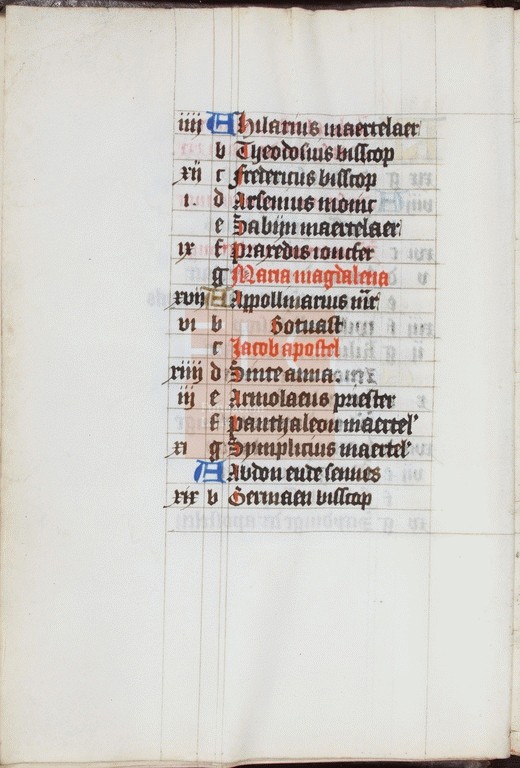 iiij A Hilarius maertelaer
b Theodosius bisscop
xij c Fredericus bisscop
i d Arsenius monic
e Sabijn maertelaer
ix f Praxedis ioncfer
g Maria magdalena
xvij A Appollinarius mr
vi b Sotuast
c Jacob apostel
xiiij d Sinte anna.
iij e Armolaeus priester
f Panthaleon maertel'
xi g Symplicius maertel'
A Abdon ende sennes
xix b Germaen bisscop